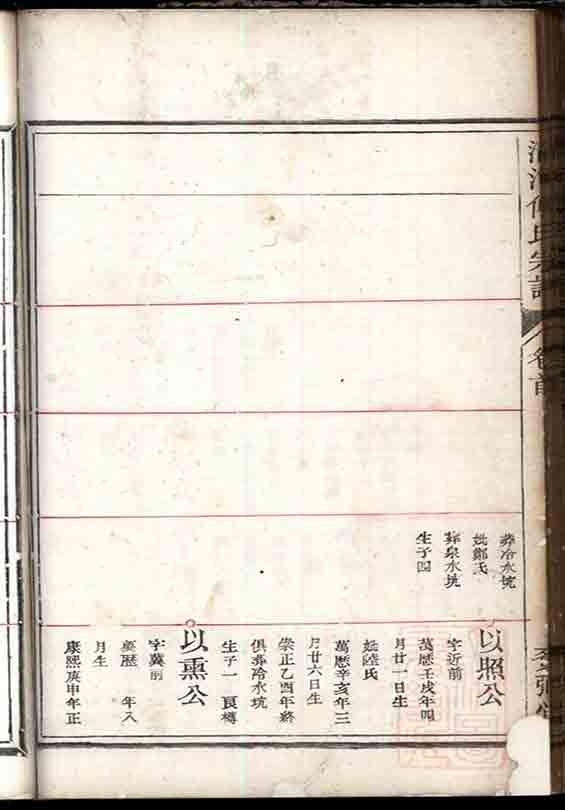 氏宗譜 卷首
葬冷水坑
妣鄭氏
葬泉水坑
生子四
以照公
字近前
萬曆壬戌年四
月廿一日生
妣陸氏
萬曆辛亥年三
月廿六日生
崇正乙酉年終
俱葬冷水坑
生子一 良樽
以熏公
字冀前
萬歷 年八
月生
康熙庚申年正